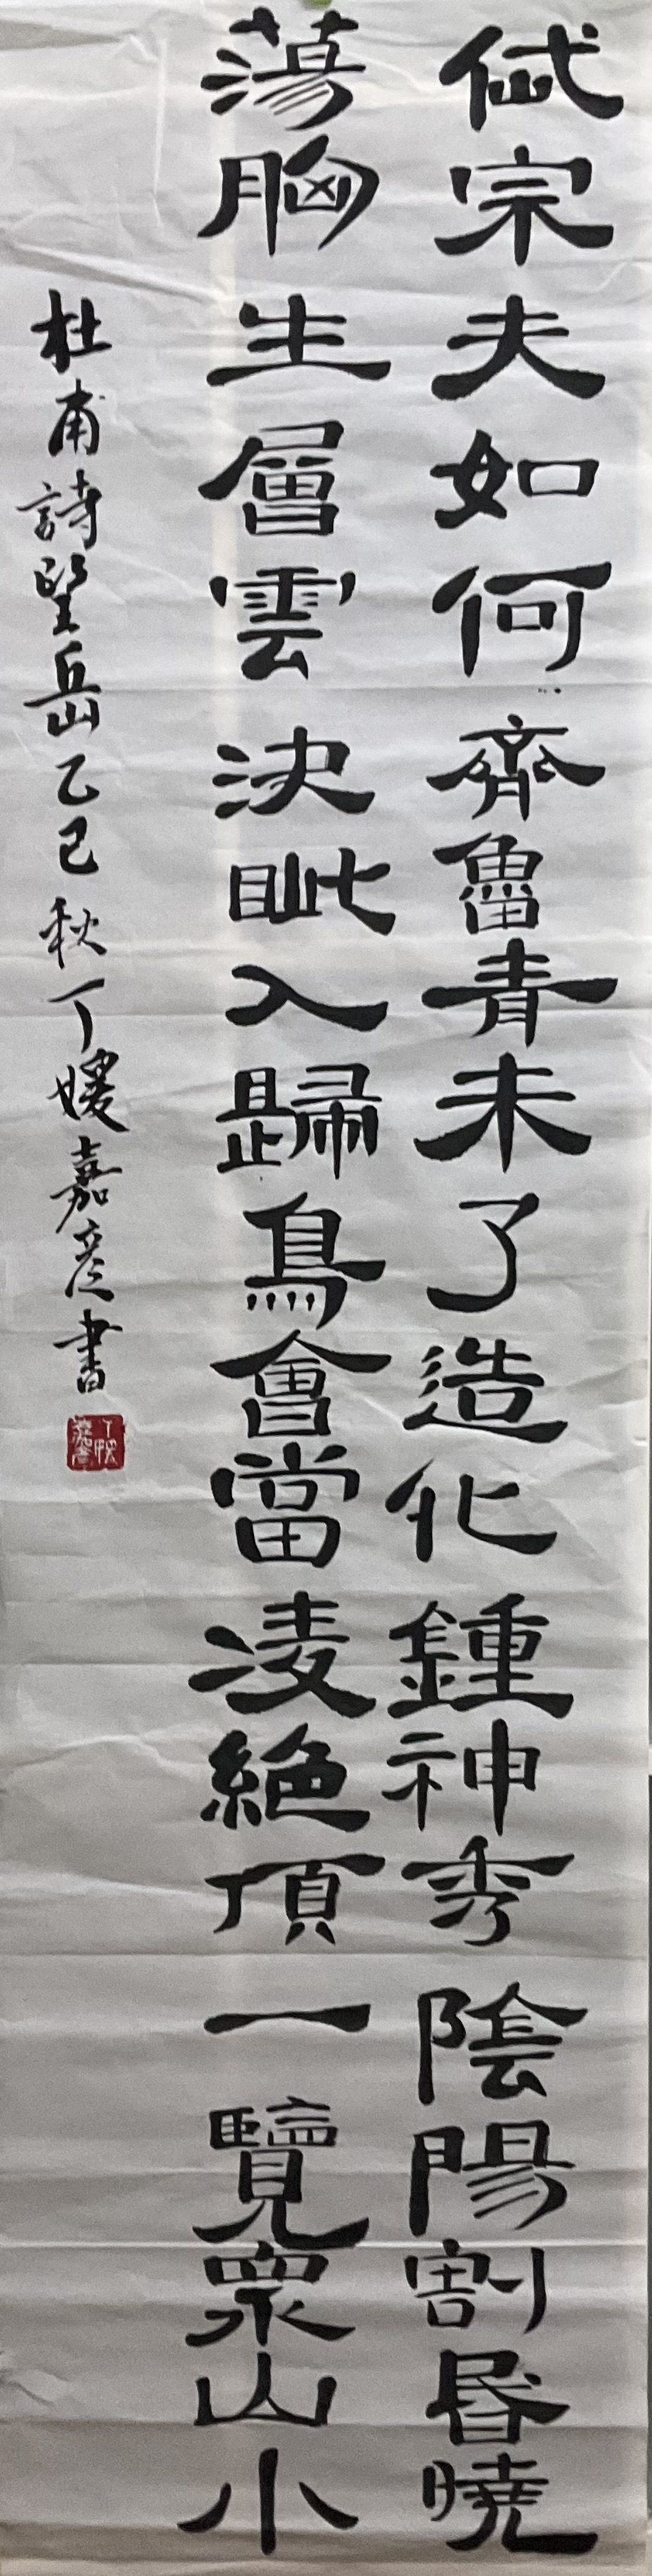 岱宗夫如何齊魯青未了造化鍾神秀陰陽割昏曉
蕩胸生層雲決眦入歸鳥會當凌絕頂一覽眾山小
杜甫詩望岳乙巳秋丁媛嘉彥書
丁媛嘉彥